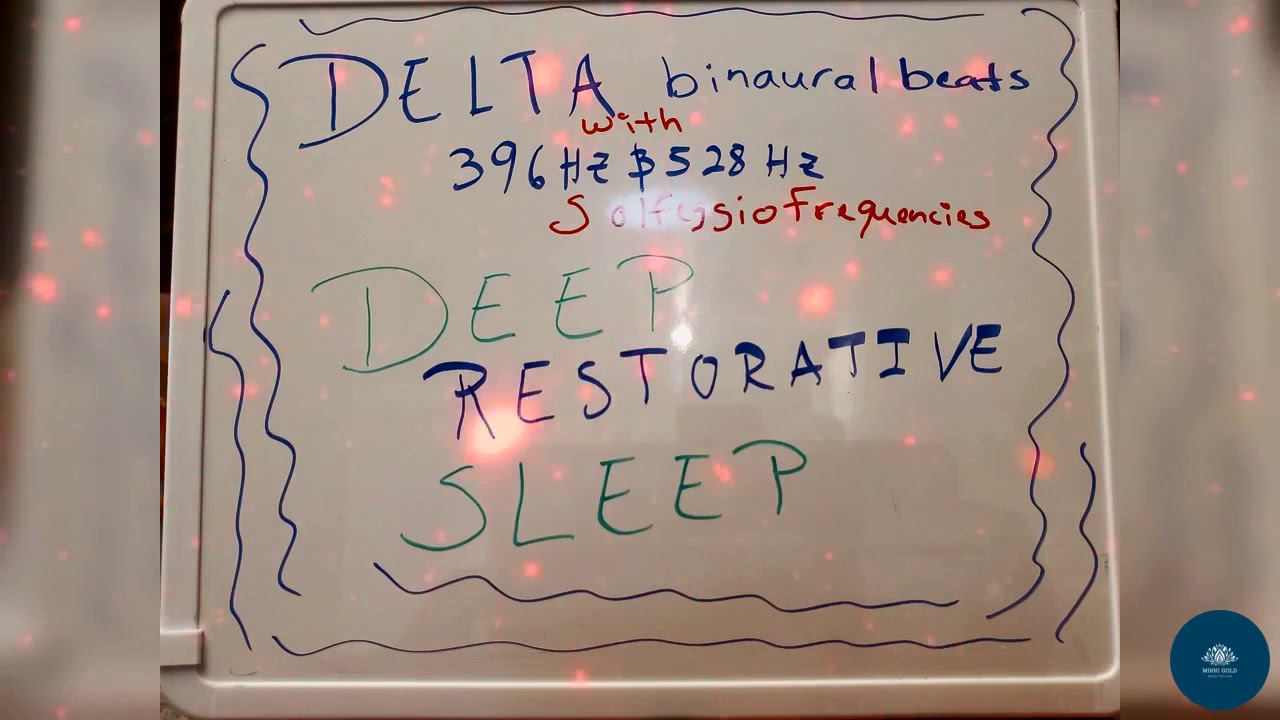 DELTA binaural beats
with
396 Hz & 528 Hz
Solfegsio frequencies
DEEP
RESTORATIVE
SLEEP
MIHKI GOLD
MEDITATION